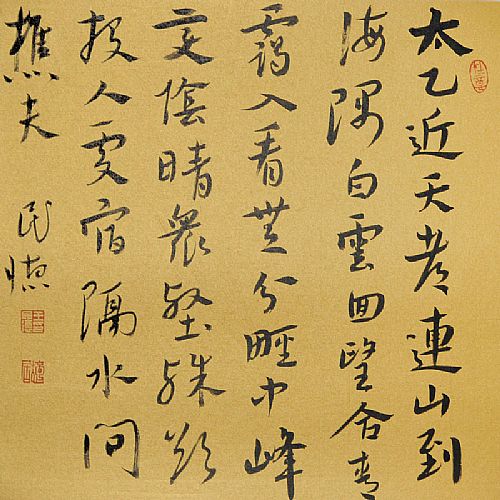 太乙近天都連山到
海隅白雲回望合青
靄入看無分野中峰
變陰晴衆壑殊欲
投人處宿隔水問
樵夫
民